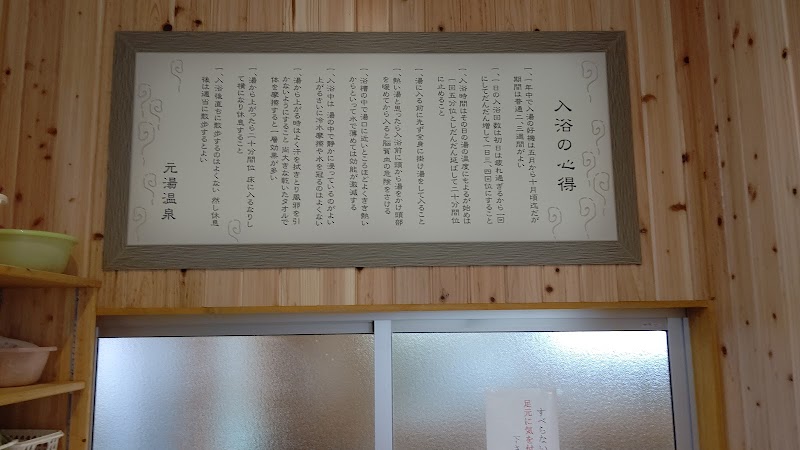 入浴の心得
一、一年中で入湯の好機は五月から十月頃迄だが
期間は普通二、三週間がよい
一、一日の入浴回数は初日は疲れ過ぎるから一回
にしてだんだん増して一日三、四回位にすること
一、入浴時間はその日の湯の温度にもよるが始めは
一回五分位としだんだん延ばして二十分間位
に止めること
一、湯に入る前に先ず全身に掛け湯をして入ること
一、熱い湯と思ったら入浴前に頭から湯をかけ頭部
を暖めてから入ると脳貧血の危険をさける
一、浴槽の中で湯口に近いところほどよくきき熱い
からといって水で薄めては効能が激減する
一、入浴中は 湯の中で静かに浸っているのがよい
上がるさいに冷水摩擦や水を冠るのはよくない
一、湯から上がる時はよく汗を拭きとり風邪を引
かないようにすること 尚大きな乾いたタオルで
体を摩擦すると一層効果が多い
一、湯から上がったら二十分間位 床に入るなりし
て横になり休息すること
一、入浴後直ちに散歩するのはよくない 然し休息
後は適当に散歩するとよい
元湯温泉
すべらない
足元に気を付
下さ